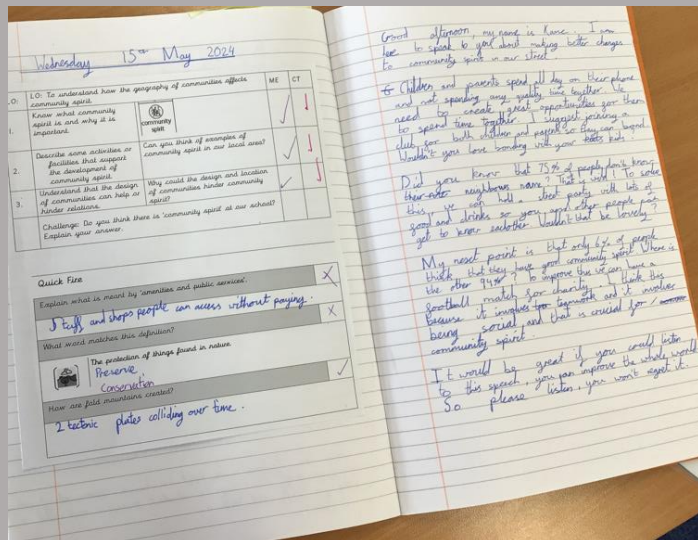 Wednesday 15th May 2024
LO:
LO: To understand how the geography of communities affects
community spirit.
ME
CT
1.
Know what community
spirit is and why it is
important.
community
spirit
2.
Describe some activities or
facilities that support
the development of
community spirit.
Can you think of examples of
community spirit in our local area?
3.
Understand that the design
of communities can help or
hinder relations.
Why could the design and location
of communities hinder community
spirit?
Challenge: Do you think there is 'community spirit' at our school?
Explain your answer.
Quick Fire
Explain what is meant by 'amenities and public services'.
Stuff and shops people can access without paying.
What word matches this definition?
The protection of things found in nature.
Preserve
Conservation
How are fold mountains created?
2 tectonic plates colliding over time.
Good afternoon, my name is I am
here to speak to you about making better changes
to community spirit in our street.
Children and parents spend all day on their phone
and not spending any quality time together. We
need to create great opportunities for them
to spend time together. I suggest joining a
club for both children and parents so they can bond.
Wouldn't you love bonding with your kids
Did you know that 75% of people don't know
their neighbours name? That is wild! To solve
this, we can hold a street party with lots of
food and drinks so you and other people can
get to know eachother. Wouldn't that be lovely?
My next point is that only 6% of people
think that they have good community spirit. Where is
the other 94%? To improve this we can have a
football match for charity. I think this
because it involves teamwork and it involves
being social, and that is crucial for
community spirit.
It would be great if you could listen
to this speech, you can improve the whole world.
So please listen, you won't regret it.